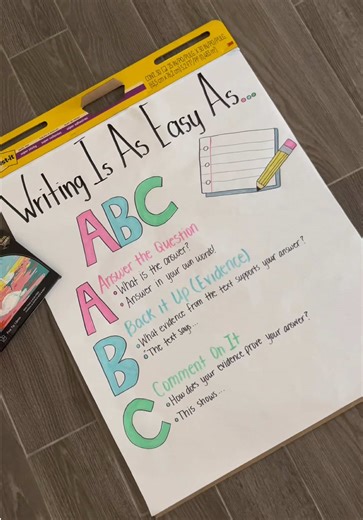 Post-it
Writing Is As Easy As...
ABC
A
Answer the Question
• What is the answer?
• Answer in your own words!
B
Back it Up (Evidence)
• What evidence from the text supports your answer?
• "The text says...
C
Comment On It
• How does your evidence prove your answer?
• This shows...